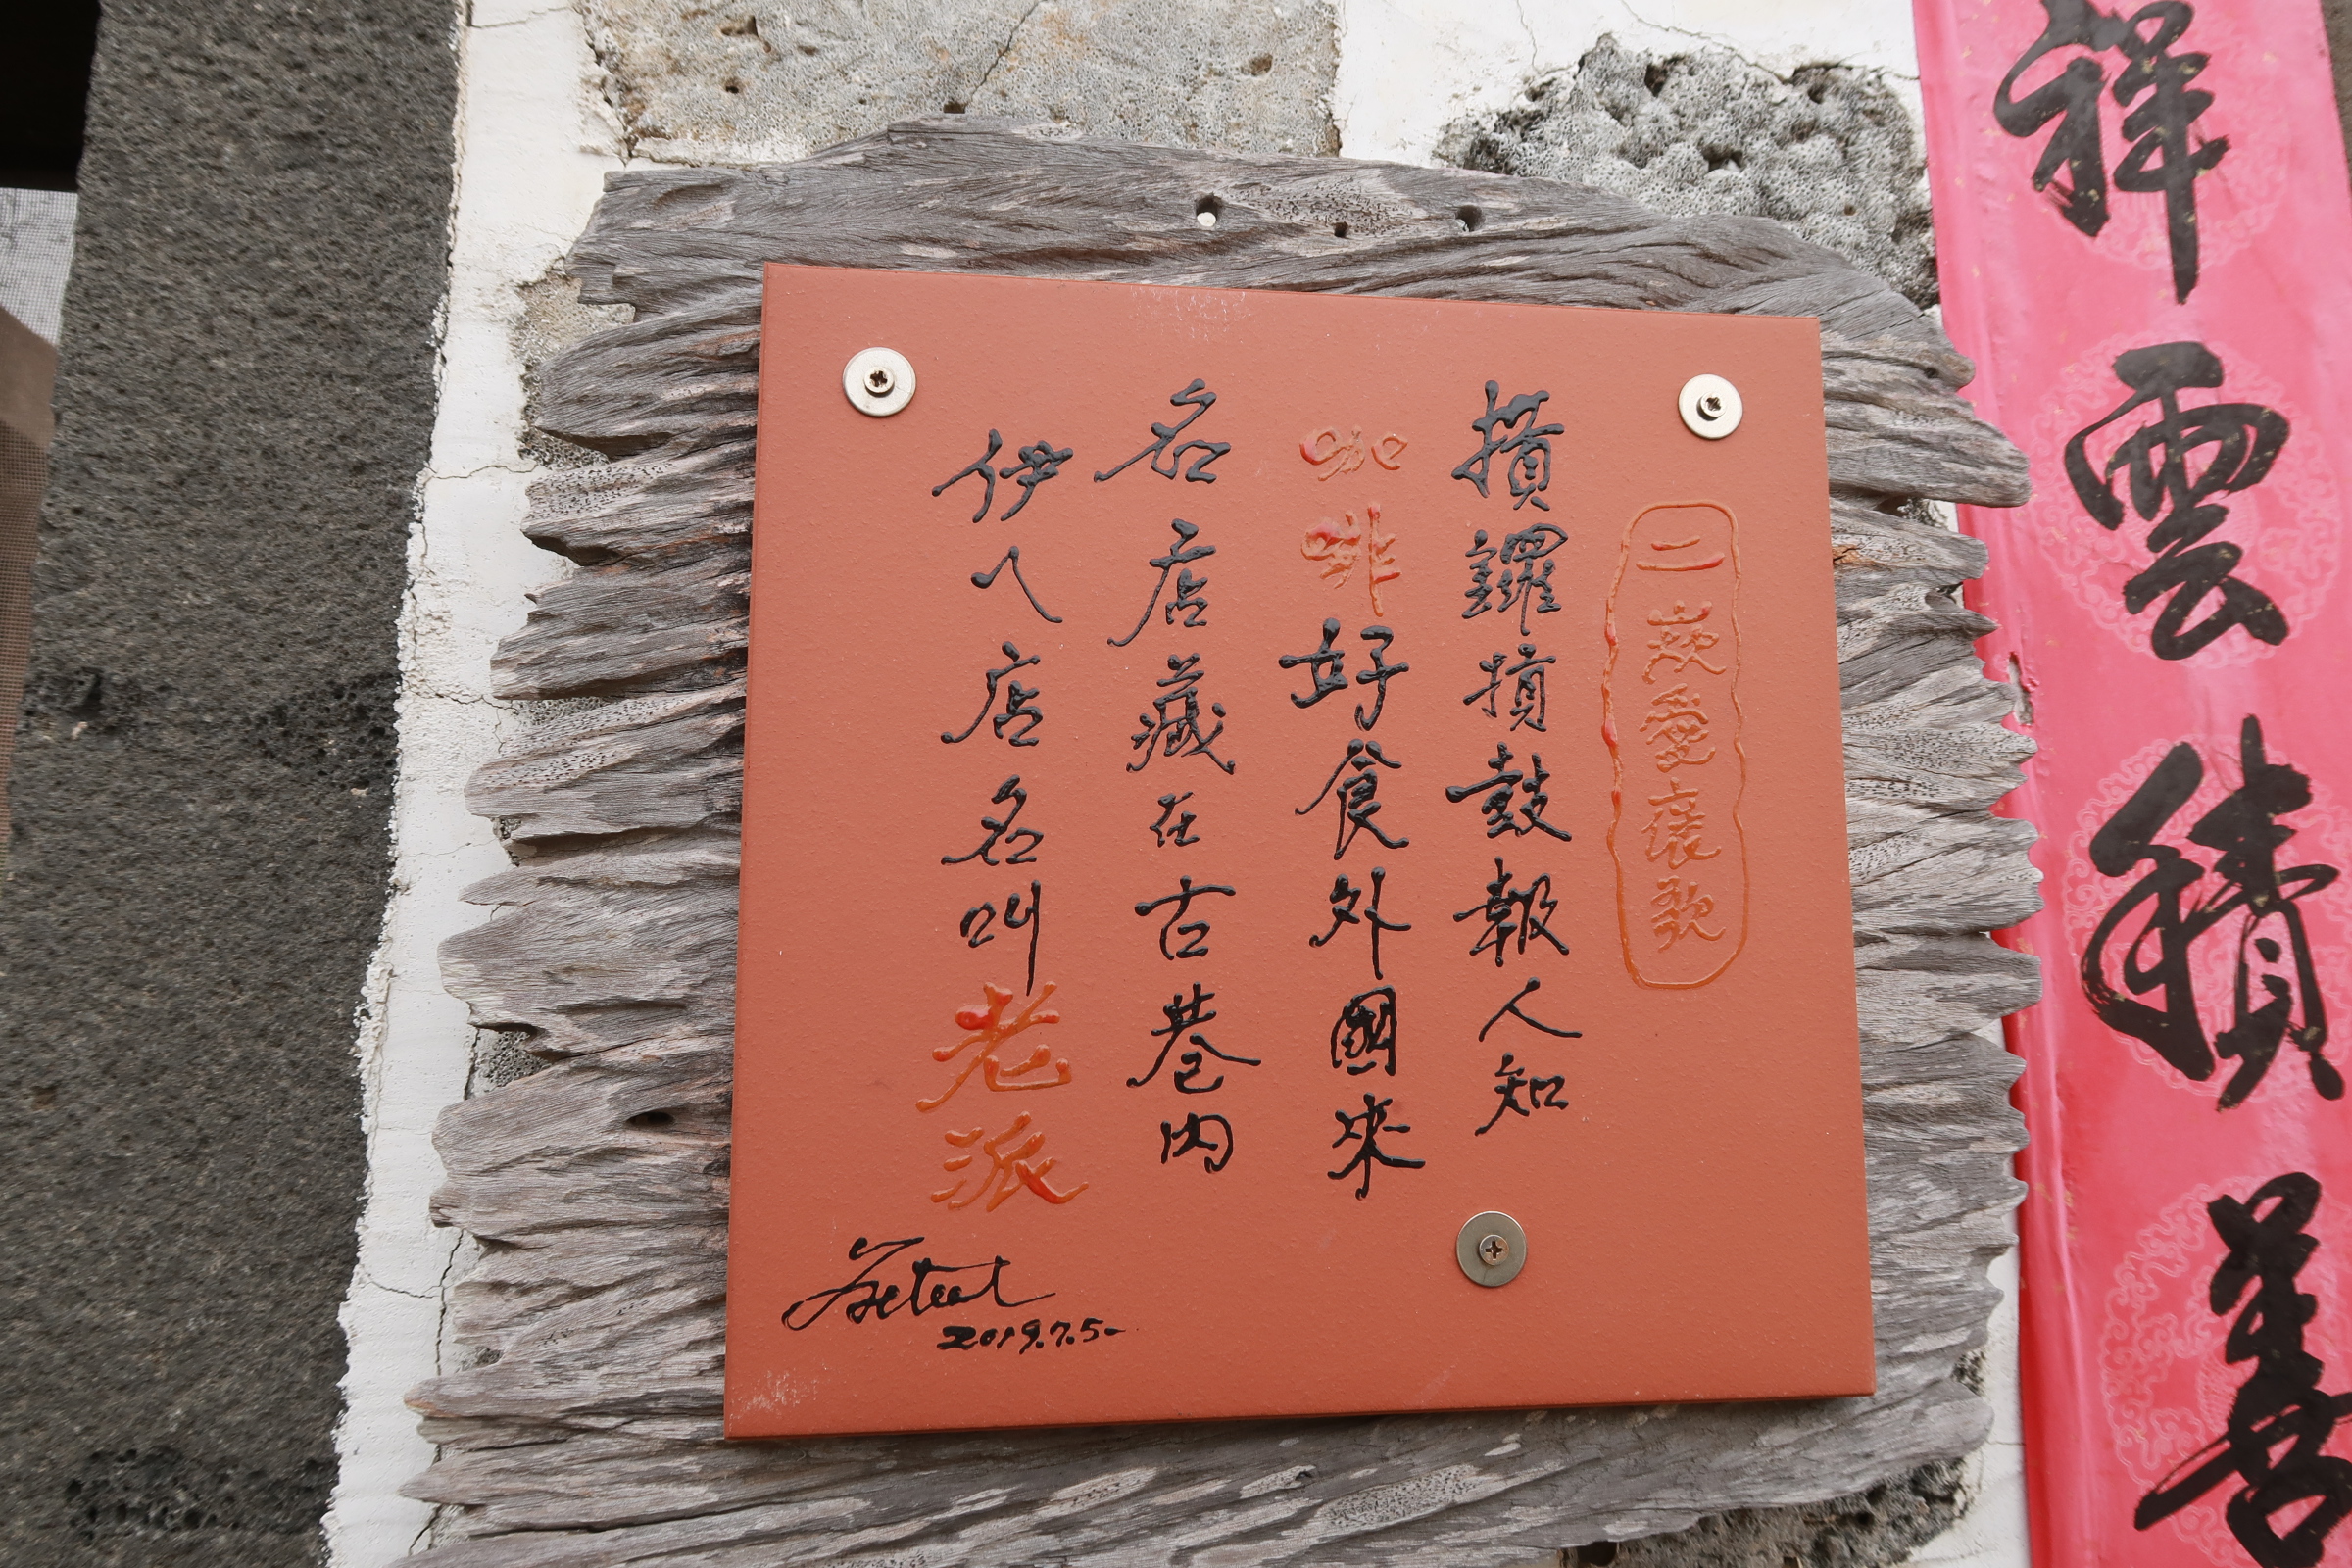 祥雲積善
二崁愛褒歌
摃鑼摃鼓報人知
咖啡好食外國來
名店藏在古巷內
伊ㄟ店名叫老派
2019.7.5-